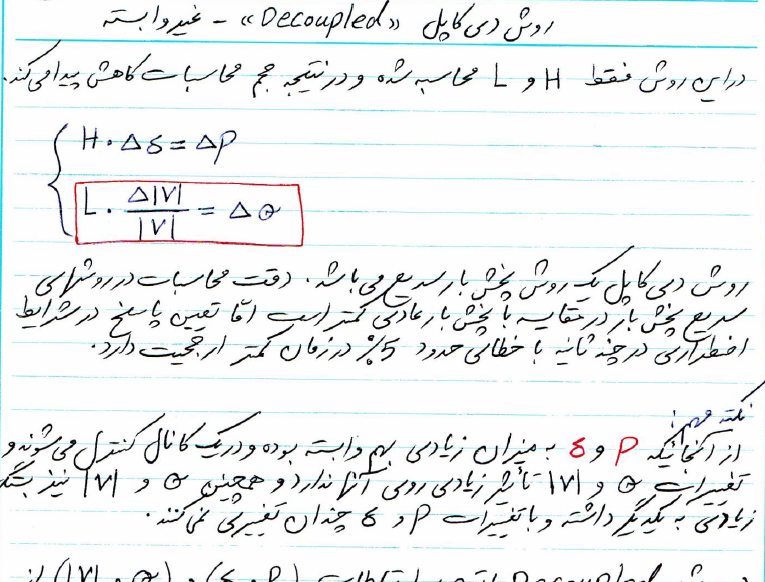 روش دی کاپل «Decoupled» - غیر وابسته
دراین روش فقط H و L محاسبه شده و در نتیجه حجم محاسبات کاهش پیدا می‌کند.
H · Δδ = ΔP
L · Δ|V| / |V| = ΔQ
روش دی کاپل یک روش پخش بار سریع می باشد. دقت محاسبات در روشهای
سریع پخش بار در مقایسه با پخش بار عادی کمتر است امّا تعیین پاسخ در شرایط
اضطراری در چند ثانیه با خطائی حدود 5٪ در زمان کمتر ارجحیت دارد.
نکته مهم:
از آنجائیکه P و δ به میزان زیادی بهم وابسته بوده و در یک کانال کنترل می شوند و
تغییرات Q و |V| تأثیر زیادی روی آنها ندارد و همچنین Q و |V| نیز بستگی
زیادی به یکدیگر داشته و با تغییرات P و δ چندان تغییری نمی کنند.
Decoupled (P و δ) و (Q و |V|) از